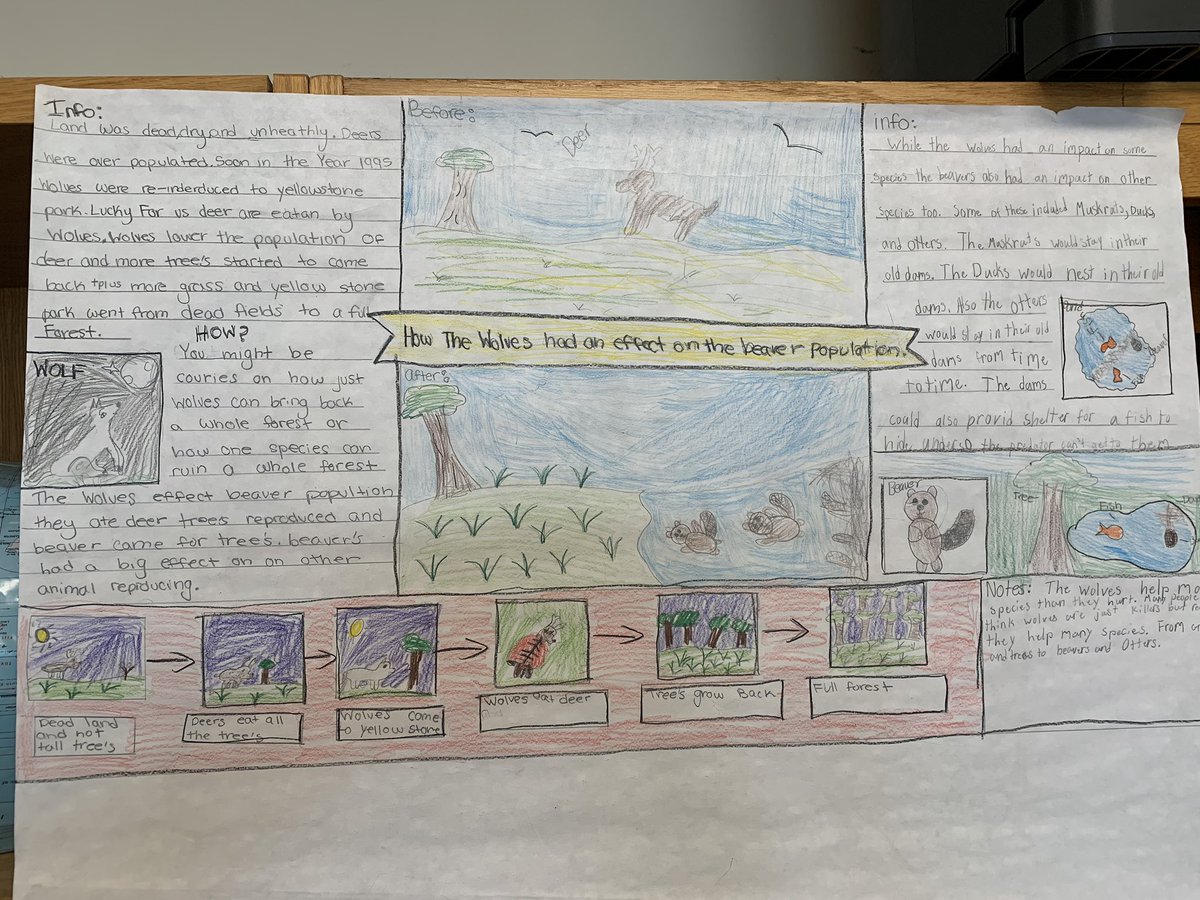 Info:
Land was dead,dry,and unheathly. Deers
were over populated. Soon in the Year 1995
Wolves were re-inderduced to yellowstone
park. Lucky For us deer are eatan by
Wolves. Wolves lower the population of
deer and more tree's started to come
back tplus more grass and yellow stone
park went from dead fields to a full
Forest.
HOW?
WOLF
You might be
couries on how just
wolves can bring back
a whole forest or
how one species can
ruin a whole forest
The Wolves effect beaver popultion
they ate deer tree's reproduced and
beaver came for tree's. beaver's
had a big effect on on other
animal reprducing.
Before:
Deer
How The Wolves had an effect on the beaver population.
After:
info:
While the wolves had an impact on some
species the beavers also had an impact on other
species too. Some of these included Muskrats, Ducks,
and otters. The Muskrat's would stay in their
old dams. The Ducks would nest in their old
dams. Also the otters
would stay in their old
dams from time
to time. The dams
could also provid shelter for a fish to
the predator can't get to them
Beaver
Tree
Fish
Dead land
and not
tall tree's
Deers eat all
the tree's
Wolves come
to yellowstone
Wolves eat deer
Tree's grow Back
Full forest
Notes: The wolves help
species than they hurt. Many people
think wolves are just killers but
they help many species. From
and trees to beavers and Otters.